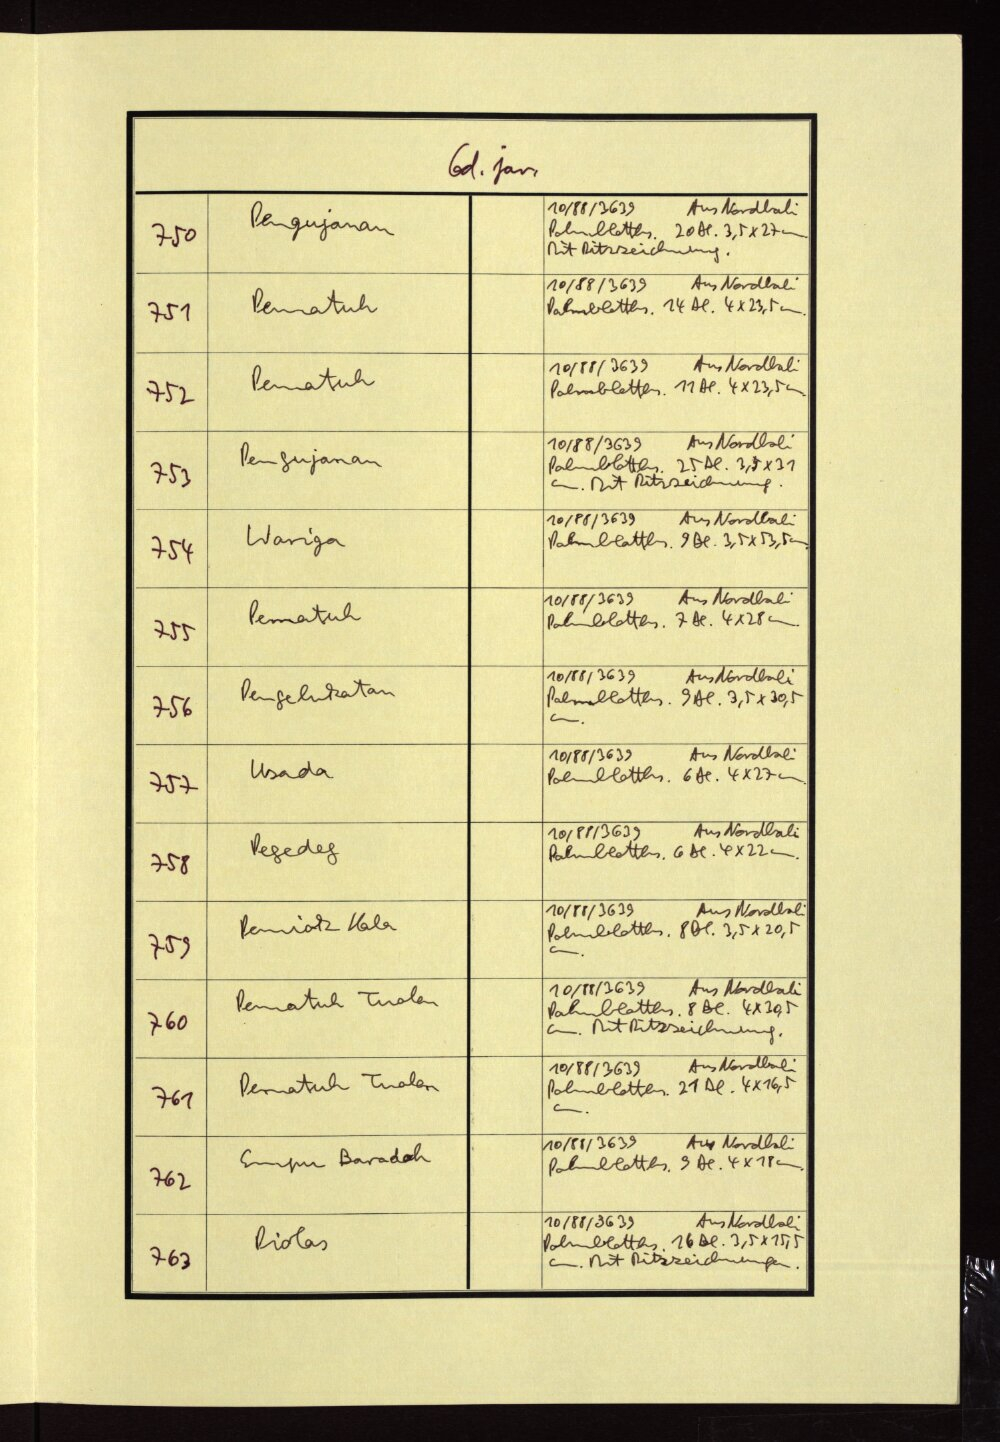 Cod. jav.
750 Pengujanan 10/88/3639 Aus Nordbali
Palmblatths. 20 Bl. 3,5 x 27 cm.
Mit Ritzzeichnung.
751 Pematuh 10/88/3639 Aus Nordbali
Palmblatths. 14 Bl. 4 x 23,5 cm.
752 Pematuh 10/88/3639 Aus Nordbali
Palmblatths. 11 Bl. 4 x 23,5 cm.
753 Pengujanan 10/88/3639 Aus Nordbali
Palmblatths. 25 Bl. 3,5 x 31
cm. Mit Ritzzeichnung.
754 Wariga 10/88/3639 Aus Nordbali
Palmblatths. 9 Bl. 3,5 x 53,5 cm
755 Pematuh 10/88/3639 Aus Nordbali
Palmblatths. 7 Bl. 4 x 28 cm.
756 Pengelukatan 10/88/3639 Aus Nordbali
Palmblatths. 9 Bl. 3,5 x 30,5
cm.
757 Usada 10/88/3639 Aus Nordbali
Palmblatths. 6 Bl. 4 x 27 cm.
758 Pegedeg 10/88/3639 Aus Nordbali
Palmblatths. 6 Bl. 4 x 22 cm.
759 Kala 10/88/3639 Aus Nordbali
Palmblatths. 8 Bl. 3,5 x 20,5
cm.
760 Pematuh Tualen 10/88/3639 Aus Nordbali
Palmblatths. 8 Bl. 4 x 30,5
cm. Mit Ritzzeichnung.
761 Pematuh Tualen 10/88/3639 Aus Nordbali
Palmblatths. 21 Bl. 4 x 16,5
cm.
762 Empu Baradah 10/88/3639 Aus Nordbali
Palmblatths. 9 Bl. 4 x 18 cm.
763 Piolas 10/88/3639 Aus Nordbali
Palmblatths. 16 Bl. 3,5 x 15,5
cm. Mit Ritzzeichnungen.